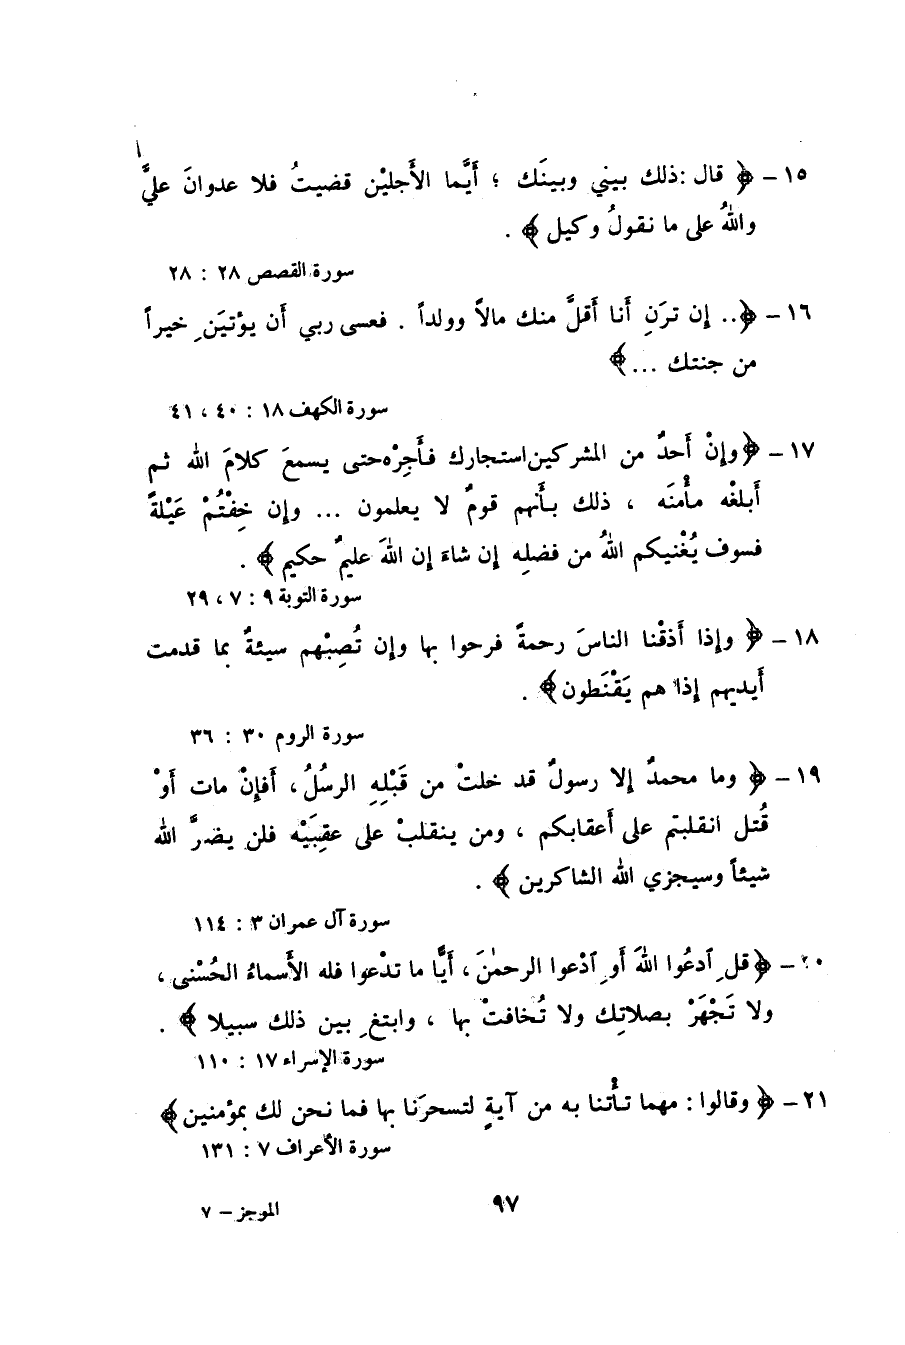 ١٥ – ﴿ قال : ذلك بيني وبينَك ؛ أَيَّما الأَجليْن قضيتُ فلا عدوانَ عليَّ
واللهُ على ما نقولُ وكيل ﴾ .
سورة القصص ٢٨ : ٢٨
١٦ – ﴿ .. إن ترَنِ أَنا أَقلَّ منك مالاً وولداً . فعسى ربي أَن يؤتيَنِ خيراً
من جنتك ... ﴾
سورة الكهف ١٨ : ٤٠ ، ٤١
١٧ – ﴿ وإنْ أَحدٌ من المشركين استجارك فأَجِرْه حتى يسمعَ كلامَ الله ثم
أَبلغْه مأْمنَه ، ذلك بأَنهم قومٌ لا يعلمون ... وإن خِفْتُمْ عَيْلةً
فسوف يُغْنيكم اللهُ من فضلِه إن شاءَ إن اللهَ عليمٌ حكيم ﴾ .
سورة التوبة ٩ : ٧ ، ٢٩
١٨ – ﴿ وإذا أَذقْنا الناسَ رحمةً فرحوا بها وإن تُصِبْهم سيئةٌ بما قدمت
أَيديهم إذا هم يَقْنَطون ﴾ .
سورة الروم ٣٠ : ٣٦
١٩ – ﴿ وما محمدٌ إلا رسولٌ قد خلتْ من قَبْلِهِ الرسُلُ ، أَفإنْ مات أَوْ
قُتل انقلبتم على أَعقابكم ، ومن ينقلبْ على عقِبَيْه فلن يضرَّ الله
شيئاً وسيجزي الله الشاكرين ﴾ .
سورة آل عمران ٣ : ١١٤
٢٠ – ﴿ قلِ ٱدعُوا اللهَ أَوِ ٱدْعوا الرحمٰنَ ، أَيًّا ما تدْعوا فله الأَسماءُ الحُسْنى ،
ولا تَجْهَرْ بصلاتِك ولا تُخافتْ بها ، وابتغِ بين ذلك سبيلا ﴾ .
سورة الإسراء ١٧ : ١١٠
٢١ – ﴿ وقالوا : مهما تأْتنا به من آيةٍ لتسحرَنا بها فما نحن لك بمؤمنين ﴾
سورة الأعراف ٧ : ١٣١
٩٧
الموجز – ٧